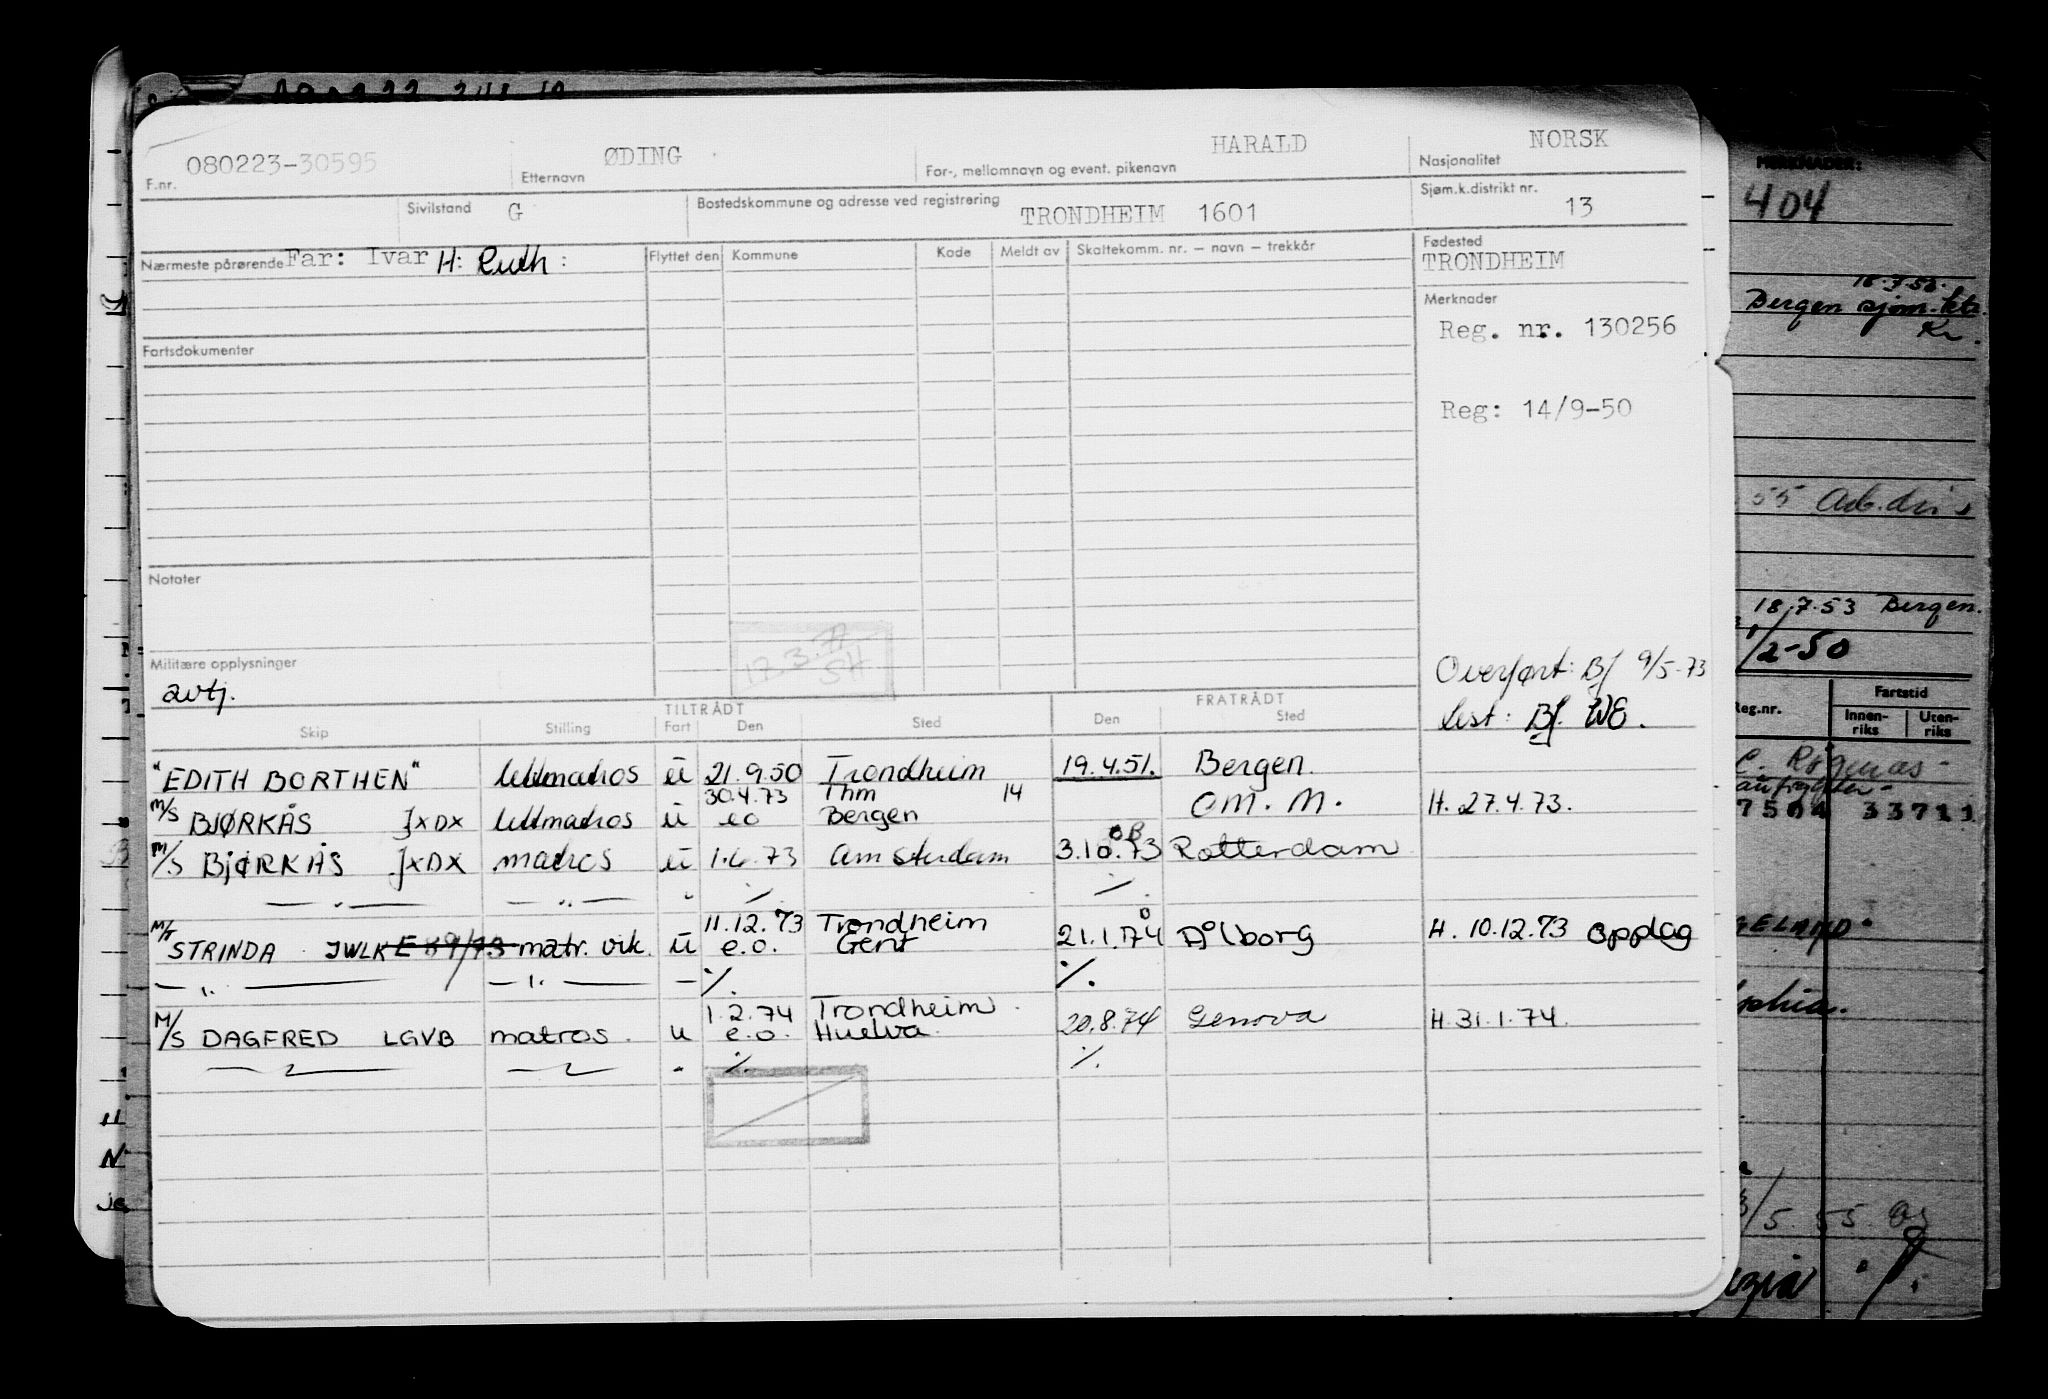 080223-30595 ØDING HARALD NORSK
F.nr. Etternavn For-, mellomnavn og event. pikenavn Nasjonalitet
Sivilstand G Bostedskommune og adresse ved registrering TRONDHEIM 1601 Sjøm.k.distrikt nr. 13
Nærmeste pårørende Far: Ivar H: Ruth: Flyttet den Kommune Kode Meldt av Skattekomm. nr. – navn – trekkår Fødested
TRONDHEIM
Merknader
Reg. nr. 130256
Fartsdokumenter
Reg: 14/9-50
Notater
17.3.
SH
Militære opplysninger
avtj.
Overført: Bf 9/5-73
Lest: Bf. WE.
TILTRÅDT FRATRÅDT
Skip Stilling Fart Den Sted Den Sted
"EDITH BORTHEN" lettmatros u 21.9.50 Trondheim 19.4.51. Bergen.
30.4.73 Thm 14
M/S BJØRKÅS JXDX lettmatros u eo Bergen OM. M. H. 27.4.73.
M/S BJØRKÅS JXDX matros u 1.6.73 Amsterdam 3.10.73 Rotterdam
— " — — " — " ./. ./.
11.12.73 Trondheim
M/T STRINDA JWLK E 89/73 matr. vik. u e.o. Gent 21.1.74 Ålborg H. 10.12.73 Oppdag
— " — — " — — ./. ./.
1.2.74 Trondheim.
M/S DAGFRED LGVB matros. u e.o. Huelva. 20.8.74 Genova H. 31.1.74.
" ./. ./.
MERKNADER:
404
18.7.53.
Bergen sjøm.ktr.
Kr.
55
18.7.53 Bergen.
1/2-50
Reg.nr. Fartstid
Innen-riks Uten-riks
7504 33711
GELAND"
/5.55.